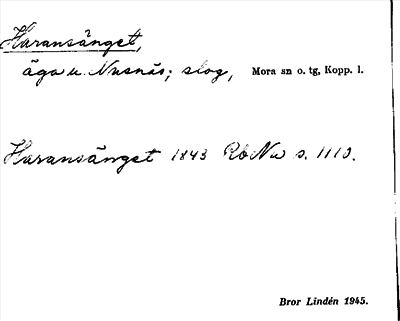 Haransänget,
äga u. Nusnäs; slog, Mora sn o. tg, Kopp. l.
Haransänget 1843 Rb Nu s. 1110.
Bror Lindén 1945.